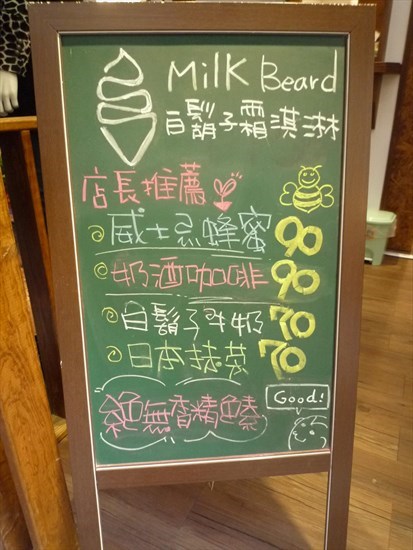 Milk Beard
白鬍子霜淇淋
店長推薦
威士忌蜂蜜 90
奶酒咖啡 90
白鬍子牛奶 70
日本抹茶 70
絕無香精色素
Good!